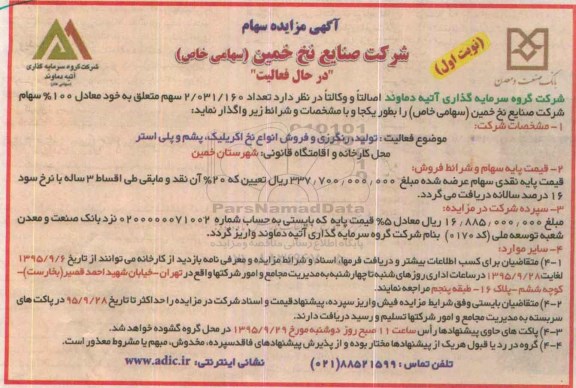 آگهی مزایده سهام
شرکت صنایع نخ خمین (سهامی خاص)
"در حال فعالیت"
(نوبت اول)
بانک صنعت و معدن
شرکت گروه سرمایه گذاری
آتیه دماوند
(سهامی خاص)
شرکت گروه سرمایه گذاری آتیه دماوند اصالتاً و وکالتاً در نظر دارد تعداد ۲/۰۳۱/۱۶۰ سهم متعلق به خود معادل ۱۰۰% سهام
شرکت صنایع نخ خمین (سهامی خاص) را بطور یکجا و با مشخصات و شرایط زیر واگذار نماید:
۱- مشخصات شرکت:
موضوع فعالیت : تولید، رنگرزی و فروش انواع نخ اکریلیک، پشم و پلی استر
محل کارخانه و اقامتگاه قانونی: شهرستان خمین
۲- قیمت پایه سهام و شرائط فروش:
قیمت پایه نقدی سهام عرضه شده مبلغ ۳۳۷٫۷۰۰٫۰۰۰٫۰۰۰ ریال تعیین که ۲۰% آن نقد و مابقی طی اقساط ۳ ساله با نرخ سود
۱۶ درصد سالانه دریافت می گردد.
۳- سپرده شرکت در مزایده:
مبلغ ۱۶٫۸۸۵٫۰۰۰٫۰۰۰ ریال معادل ۵% قیمت پایه که بایستی به حساب شماره ۰۲۰۰۰۰۰۰۷۱۰۰۲ نزد بانک صنعت و معدن
شعبه توسعه ملی (کد ۰۱۷۰) بنام شرکت گروه سرمایه گذاری آتیه دماوند واریز گردد.
۴- سایر موارد:
۴-۱) متقاضیان برای کسب اطلاعات بیشتر و دریافت فرمها، اسناد و شرائط مزایده و معرفی نامه بازدید از کارخانه می توانند از تاریخ ۱۳۹۵/۹/۶
لغایت ۱۳۹۵/۹/۲۸ در ساعات اداری روزهای شنبه تا چهارشنبه به مدیریت مجامع و امور شرکتها واقع در تهران -خیابان شهید احمد قصیر (بخارست)-
کوچه ششم -پلاک ۱۶- طبقه پنجم مراجعه نمایند.
۴-۲) متقاضیان بایستی وفق شرایط مزایده فیش واریز سپرده، پیشنهاد قیمت و اسناد شرکت در مزایده را حداکثر تا تاریخ ۹۵/۹/۲۸ در پاکت های
سربسته به مدیریت مجامع و امور شرکتها تسلیم و رسید دریافت دارند.
۴-۳) پاکت های حاوی پیشنهادها رأس ساعت ۱۱ صبح روز دوشنبه مورخ ۱۳۹۵/۹/۲۹ در محل گروه گشوده خواهد شد.
۴-۴) گروه در رد یا قبول هریک از پیشنهادها مختار بوده و از پذیرش پیشنهادهای فاقد سپرده، مخدوش، مبهم یا مشروط معذور است.
تلفن تماس : ۸۸۵۲۱۵۹۹(۰۲۱) نشانی اینترنتی: www.adic.ir
ParsNamadData
پایگاه اطلاع رسانی مناقصه و مزایده